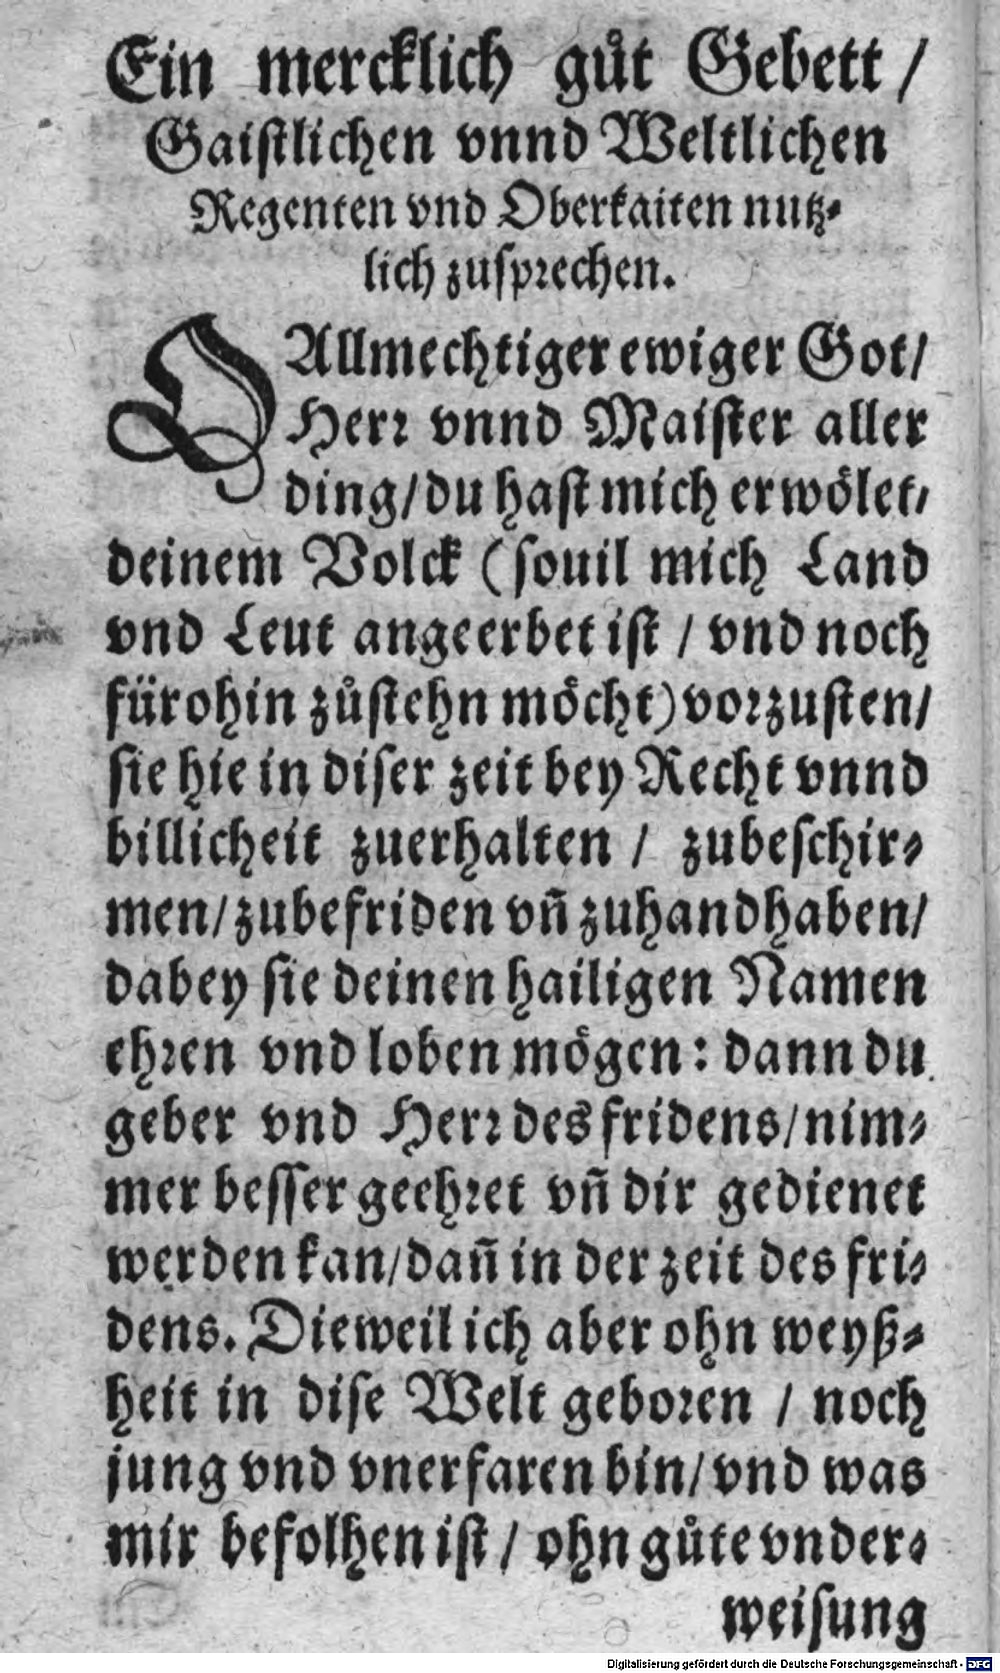 Ein mercklich gůt Gebett /
Gaistlichen vnnd Weltlichen
Regenten vnd Oberkaiten nutz⸗
lich zusprechen.
O Allmechtiger ewiger Got/
Herr vnnd Maister aller
ding/du hast mich erwölet/
deinem Volck (souil mich Land
vnd Leut angeerbet ist / vnd noch
fürohin zůstehn möcht) vorzusten/
sie hie in diser zeit bey Recht vnnd
billicheit zuerhalten / zubeschir⸗
men/zubefriden vñ zuhandhaben/
dabey sie deinen hailigen Namen
ehren vnd loben mögen: dann du
geber vnd Herr des fridens/nim⸗
mer besser geehret vñ dir gedienet
werden kan/dañ in der zeit des fri⸗
dens. Dieweil ich aber ohn weyß⸗
heit in dise Welt geboren / noch
jung vnd vnerfaren bin/vnd was
mir befolhen ist / ohn gůte vnder⸗
weisung
Digitalisierung gefördert durch die Deutsche Forschungsgemeinschaft - DFG